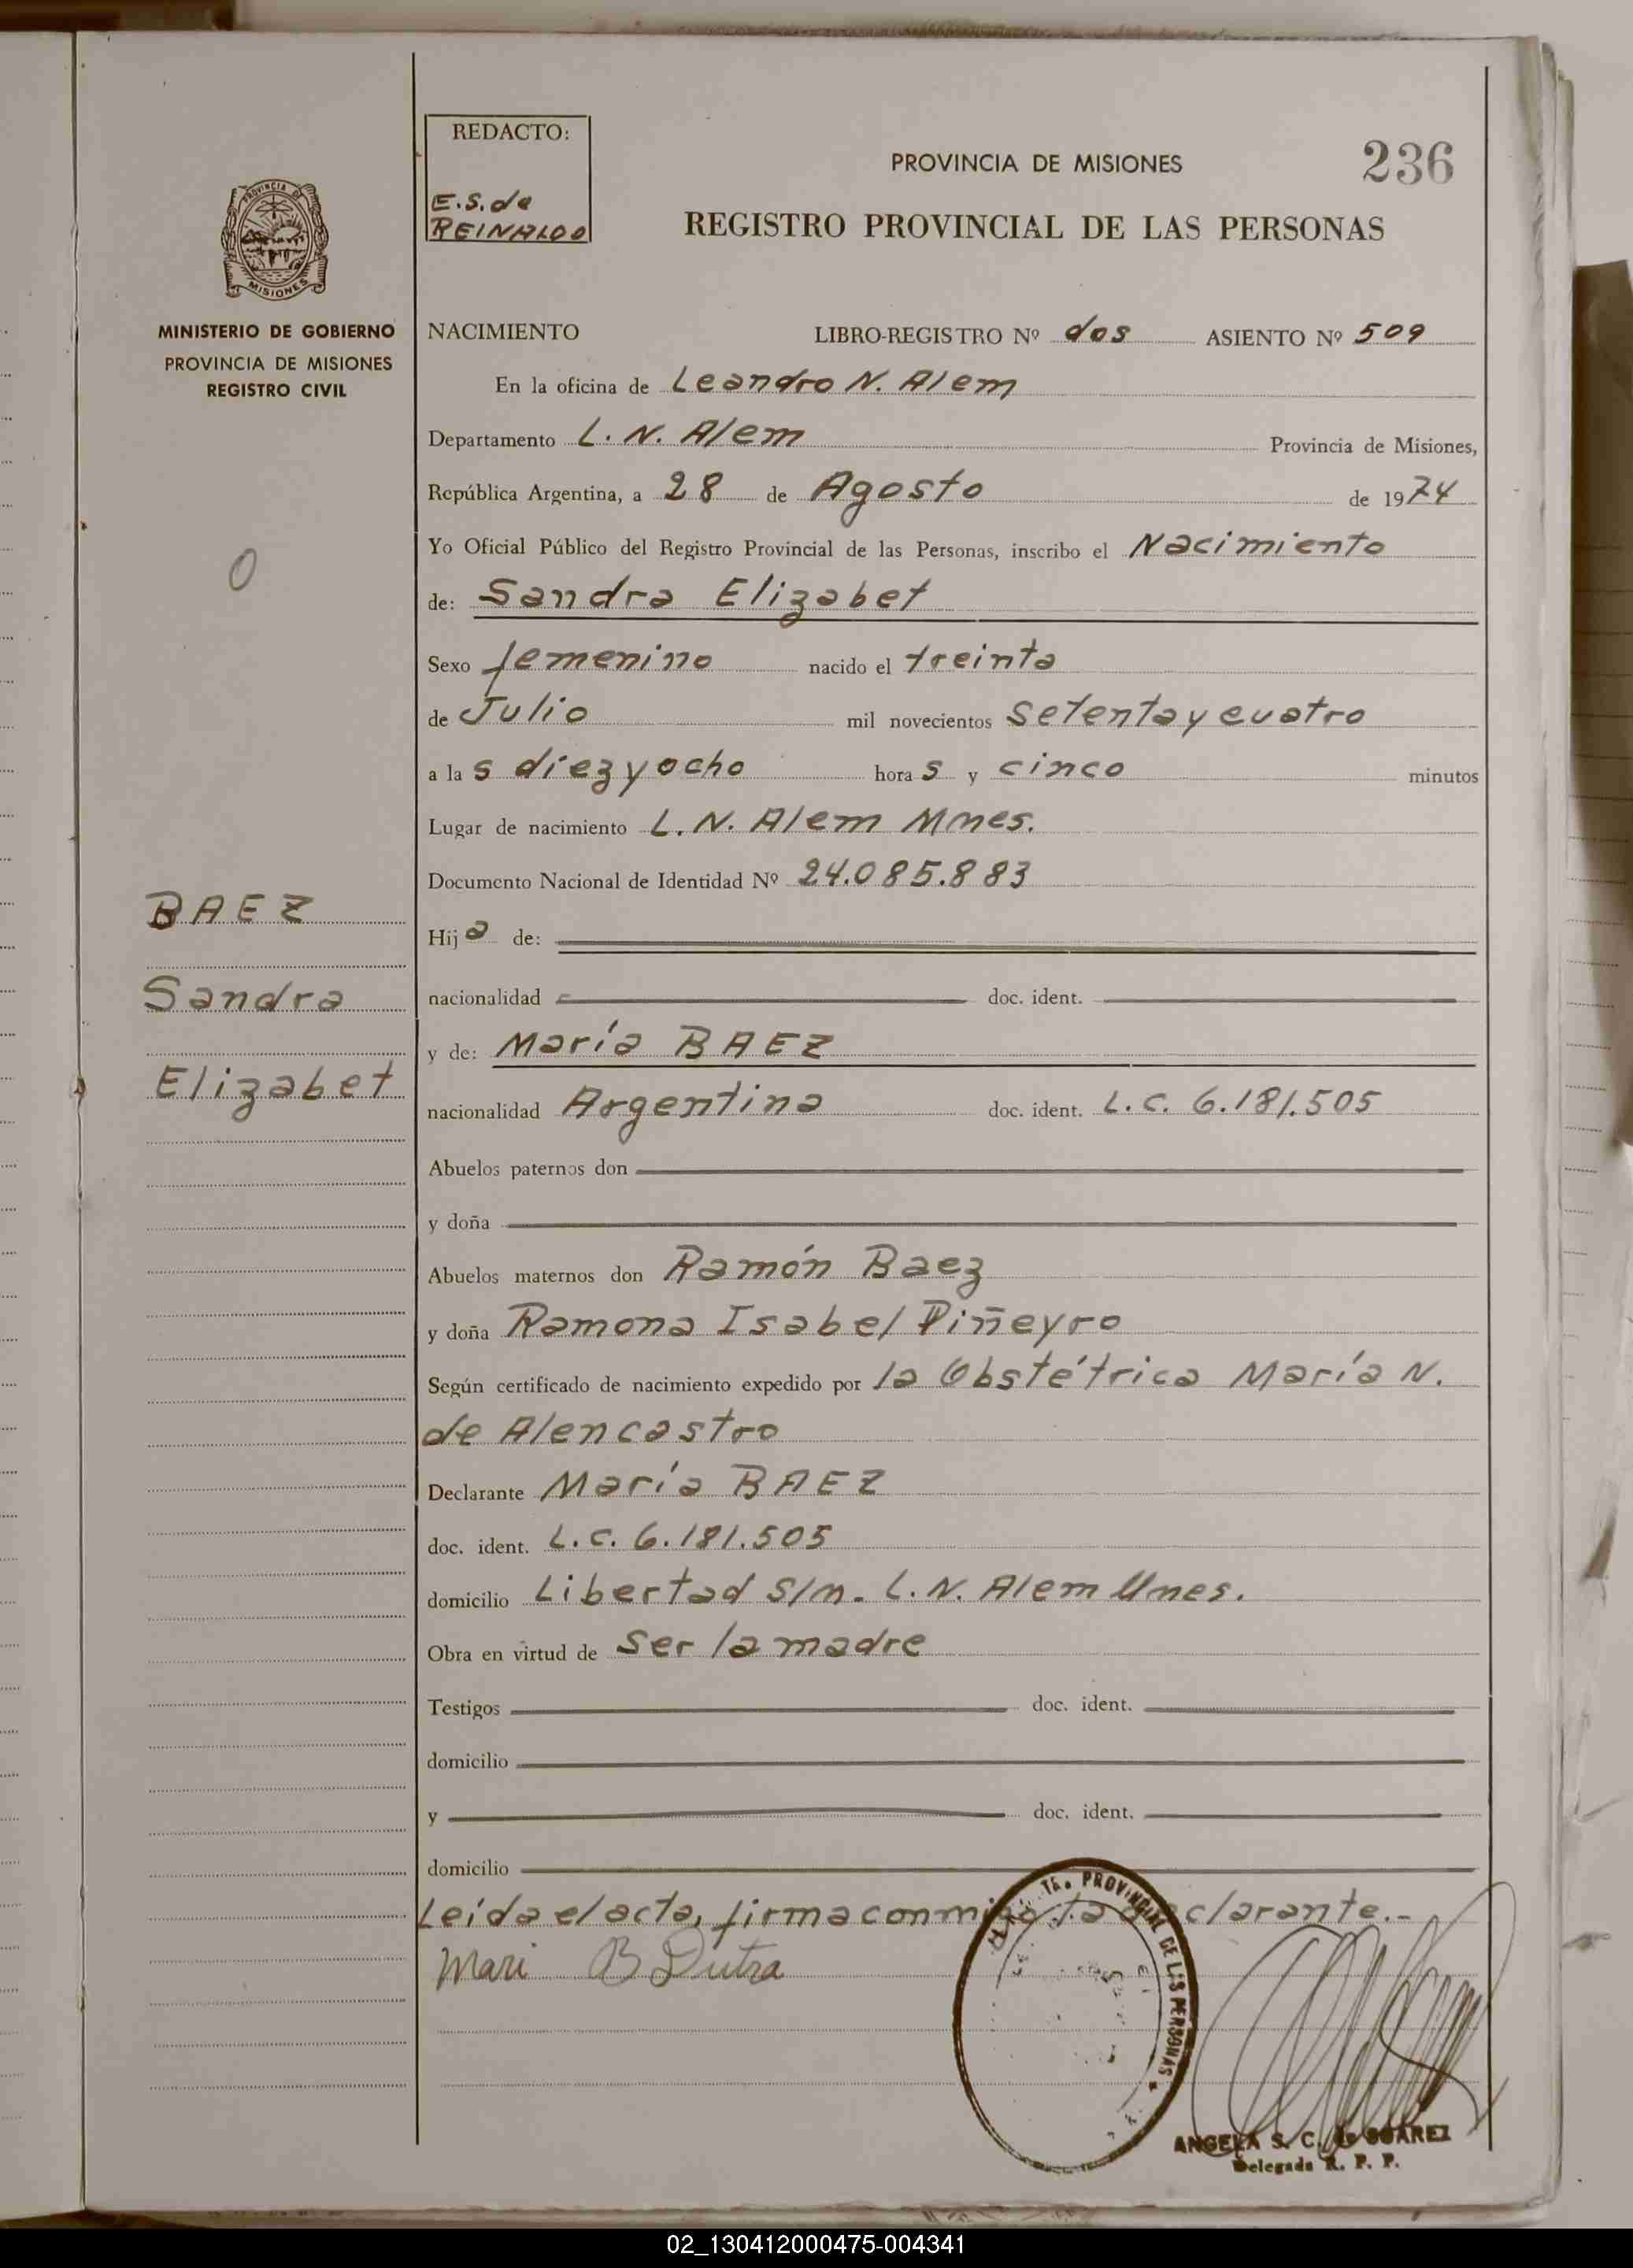 REDACTO:
E.S. de
REINALDO
PROVINCIA DE MISIONES
236
REGISTRO PROVINCIAL DE LAS PERSONAS
PROVINCIA DE
MISIONES
MINISTERIO DE GOBIERNO
PROVINCIA DE MISIONES
REGISTRO CIVIL
NACIMIENTO LIBRO-REGISTRO Nº dos ASIENTO Nº 509
En la oficina de Leandro N. Alem
Departamento L. N. Alem Provincia de Misiones,
República Argentina, a 28 de Agosto de 1974
Yo Oficial Público del Registro Provincial de las Personas, inscribo el Nacimiento
de: Sandra Elizabet
Sexo femenino nacido el treinta
de Julio mil novecientos setenta y cuatro
a las diez y ocho horas y cinco minutos
Lugar de nacimiento L. N. Alem Mnes.
Documento Nacional de Identidad Nº 24.085.883
BAEZ
Sandra
Elizabet
Hija de:
nacionalidad doc. ident.
y de: María BAEZ
nacionalidad Argentina doc. ident. L.C. 6.181.505
Abuelos paternos don
y doña
Abuelos maternos don Ramón Baez
y doña Ramona Isabel Piñeyro
Según certificado de nacimiento expedido por la Obstétrica María N.
de Alencastro
Declarante María BAEZ
doc. ident. L.C. 6.181.505
domicilio Libertad S/n. L.N. Alem Mnes.
Obra en virtud de ser la madre
Testigos doc. ident.
domicilio
y doc. ident.
domicilio
Leída el acta, firma conmigo la declarante.-
Mari B Dutra
PROVINCIAL DE LAS PERSONAS
ANGELA S. C. de SUAREZ
Delegada R. P. P.
02_130412000475-004341